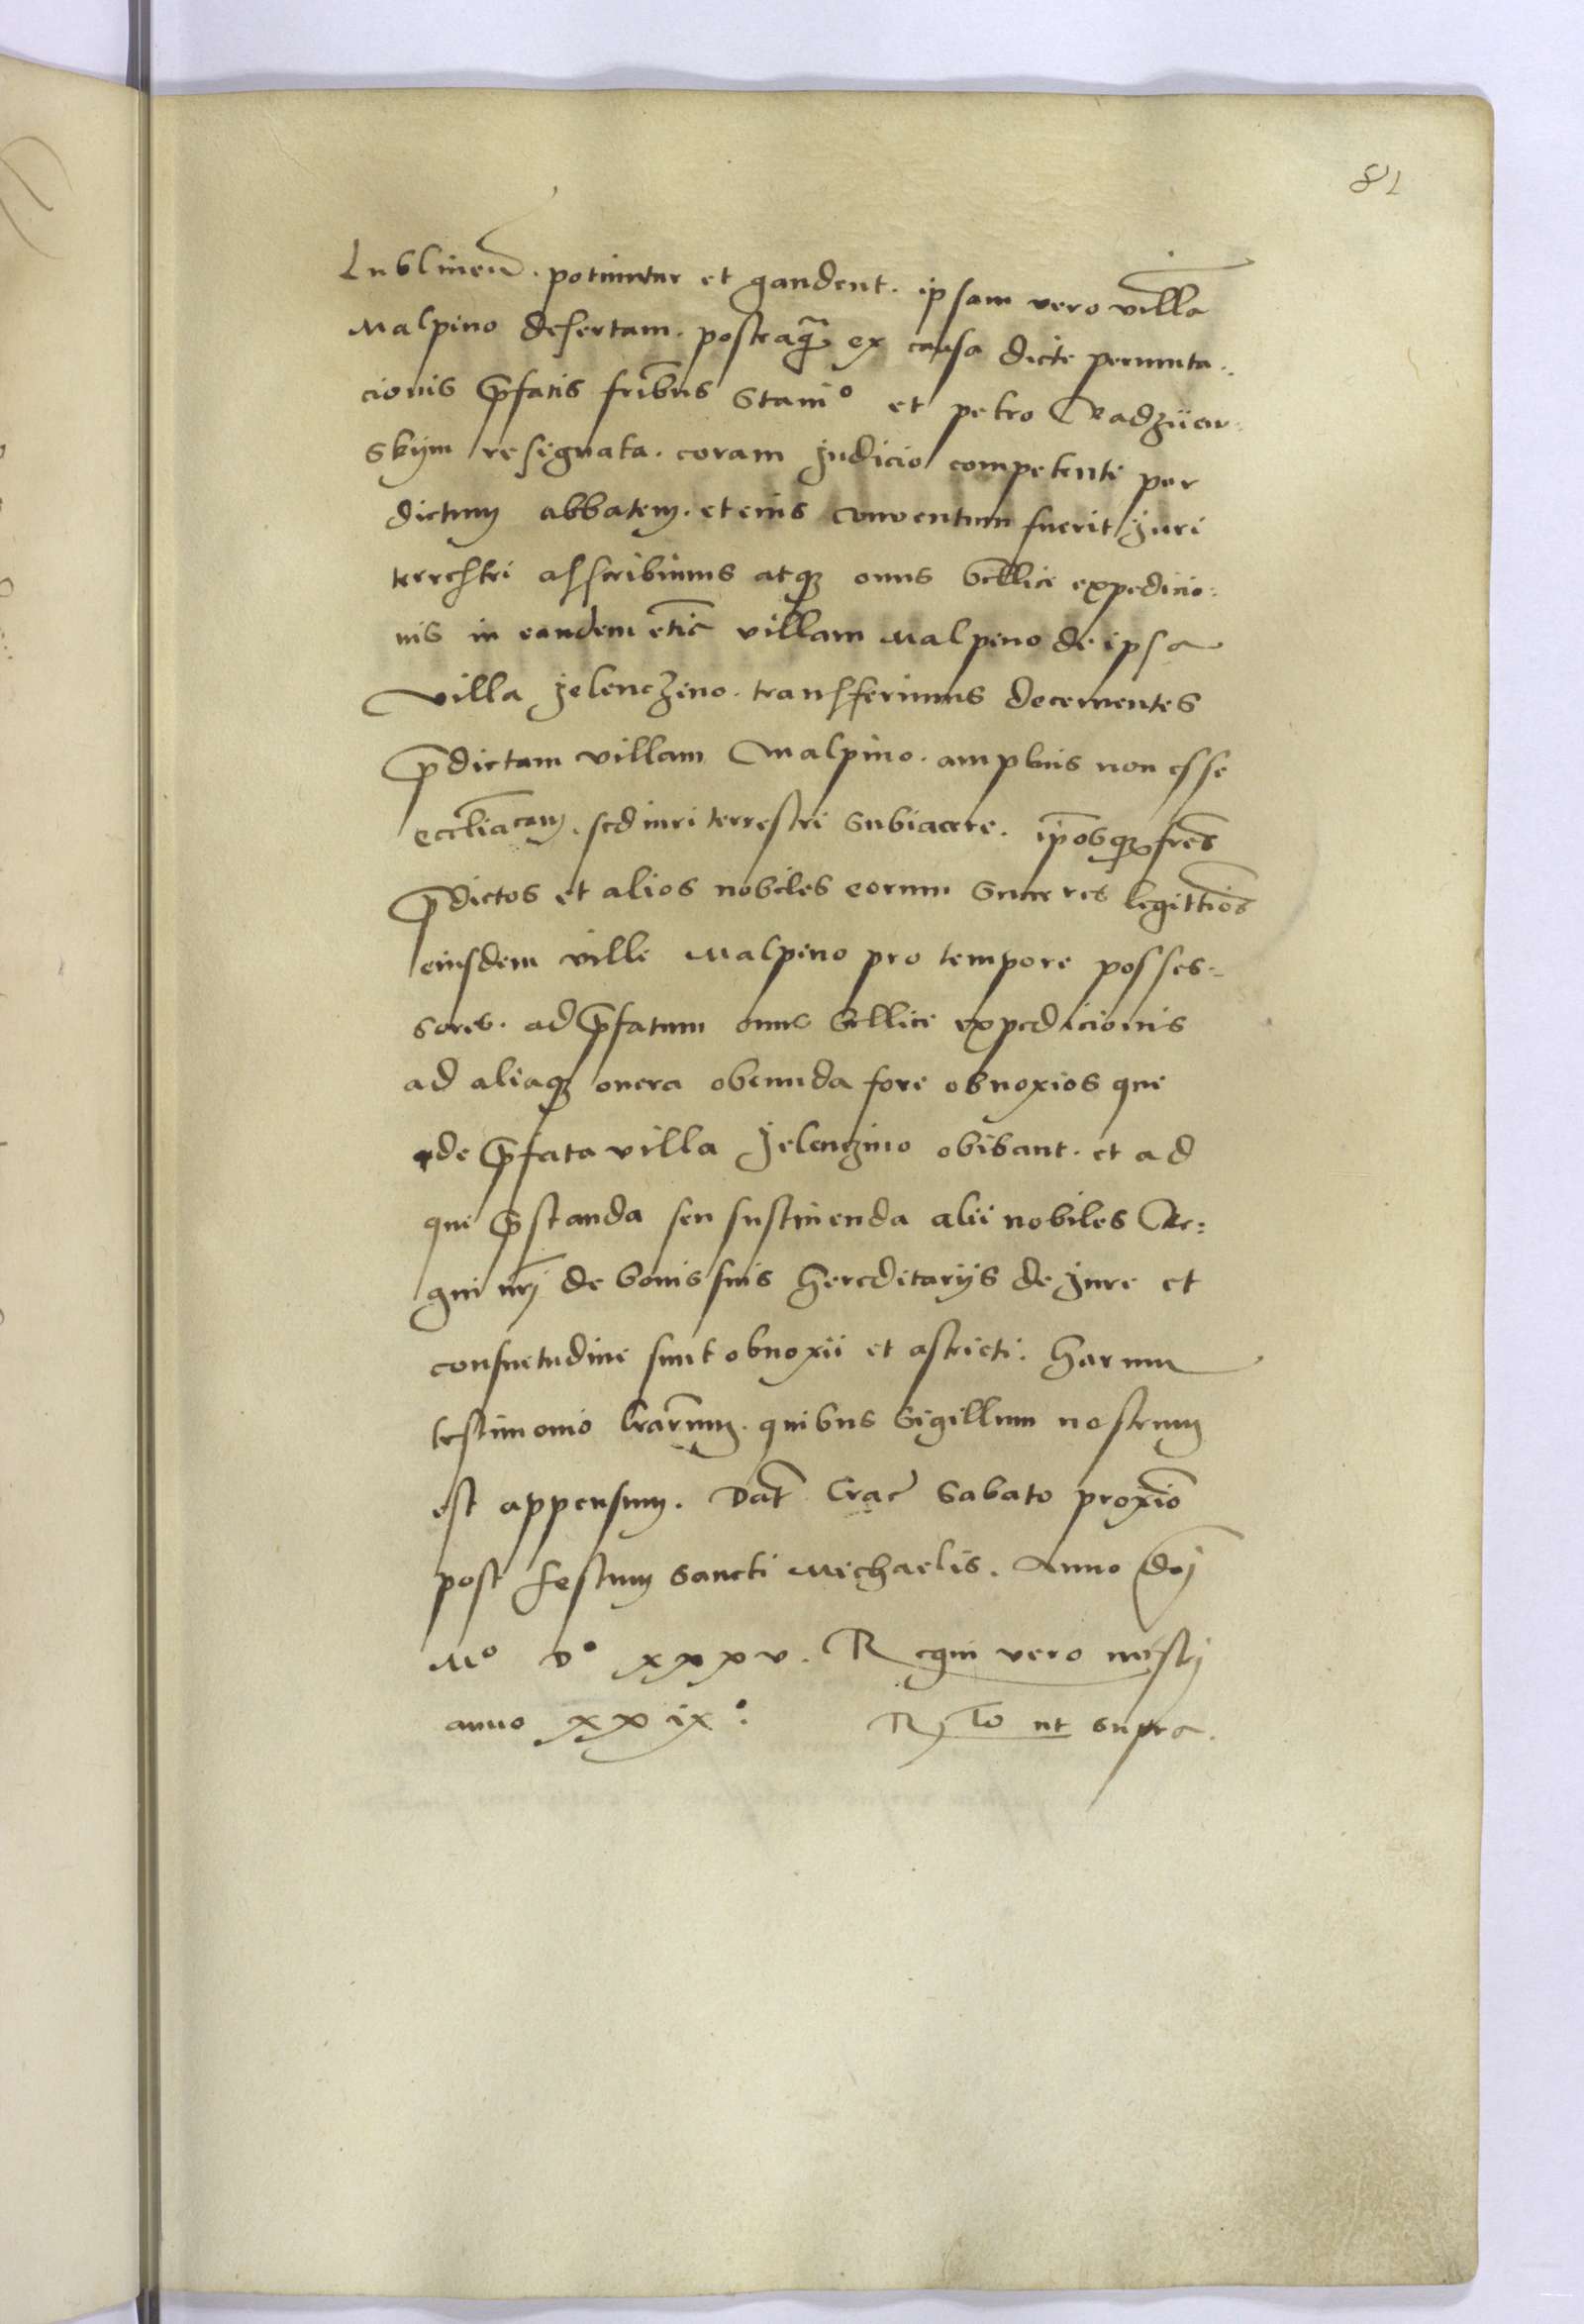 81
Lublinen̄. potiuntur et gaudent. ipsam vero villā
Malpino desertam. posteaq̄ ex causa dicte permuta-
cionis p̄fatis frībus Stanᵒ et petro Radziien-
skym resignata. coram judicio competenti per
dictum abbatem. et eius conventum fuerit juri
terrestri asscribimus atq̨ onus bellice expedicio:
nis in eandem etiā villam Malpino de ipsa
villa jelenczino. transferimus decernentes
p̄dictam villam Malpino. amplius non esse
ecclīacam. sed iuri terrestri subiacere. ip̄osq̨ frēs
p̄dictos et alios nobiles eorum succres legittīos
eiusdem ville Malpino pro tempore posses-
sores. ad p̄fatum onus bellice expedicionis
ad aliaq̨ onera obeunda fore obnoxios que
de p̄fata villa jelenczino obibant. et ad
que p̄standa seu sustinenda alii nobiles Re:
gni nr̄j de bonis suis hereditarijs de jure et
consuetudine sunt obnoxii et astricti. Harum
testimonio lrārum. quibus sigillum nostrum
est appensum. Dat̄ Crac̄ Sabato proxīo
post festum sancti Michaelis. Anno dn̄j
Mᵒ Dᵒ xxxv. Regni vero nostrj
anno xxixᵒ. Rᵗᵒ ut supra.